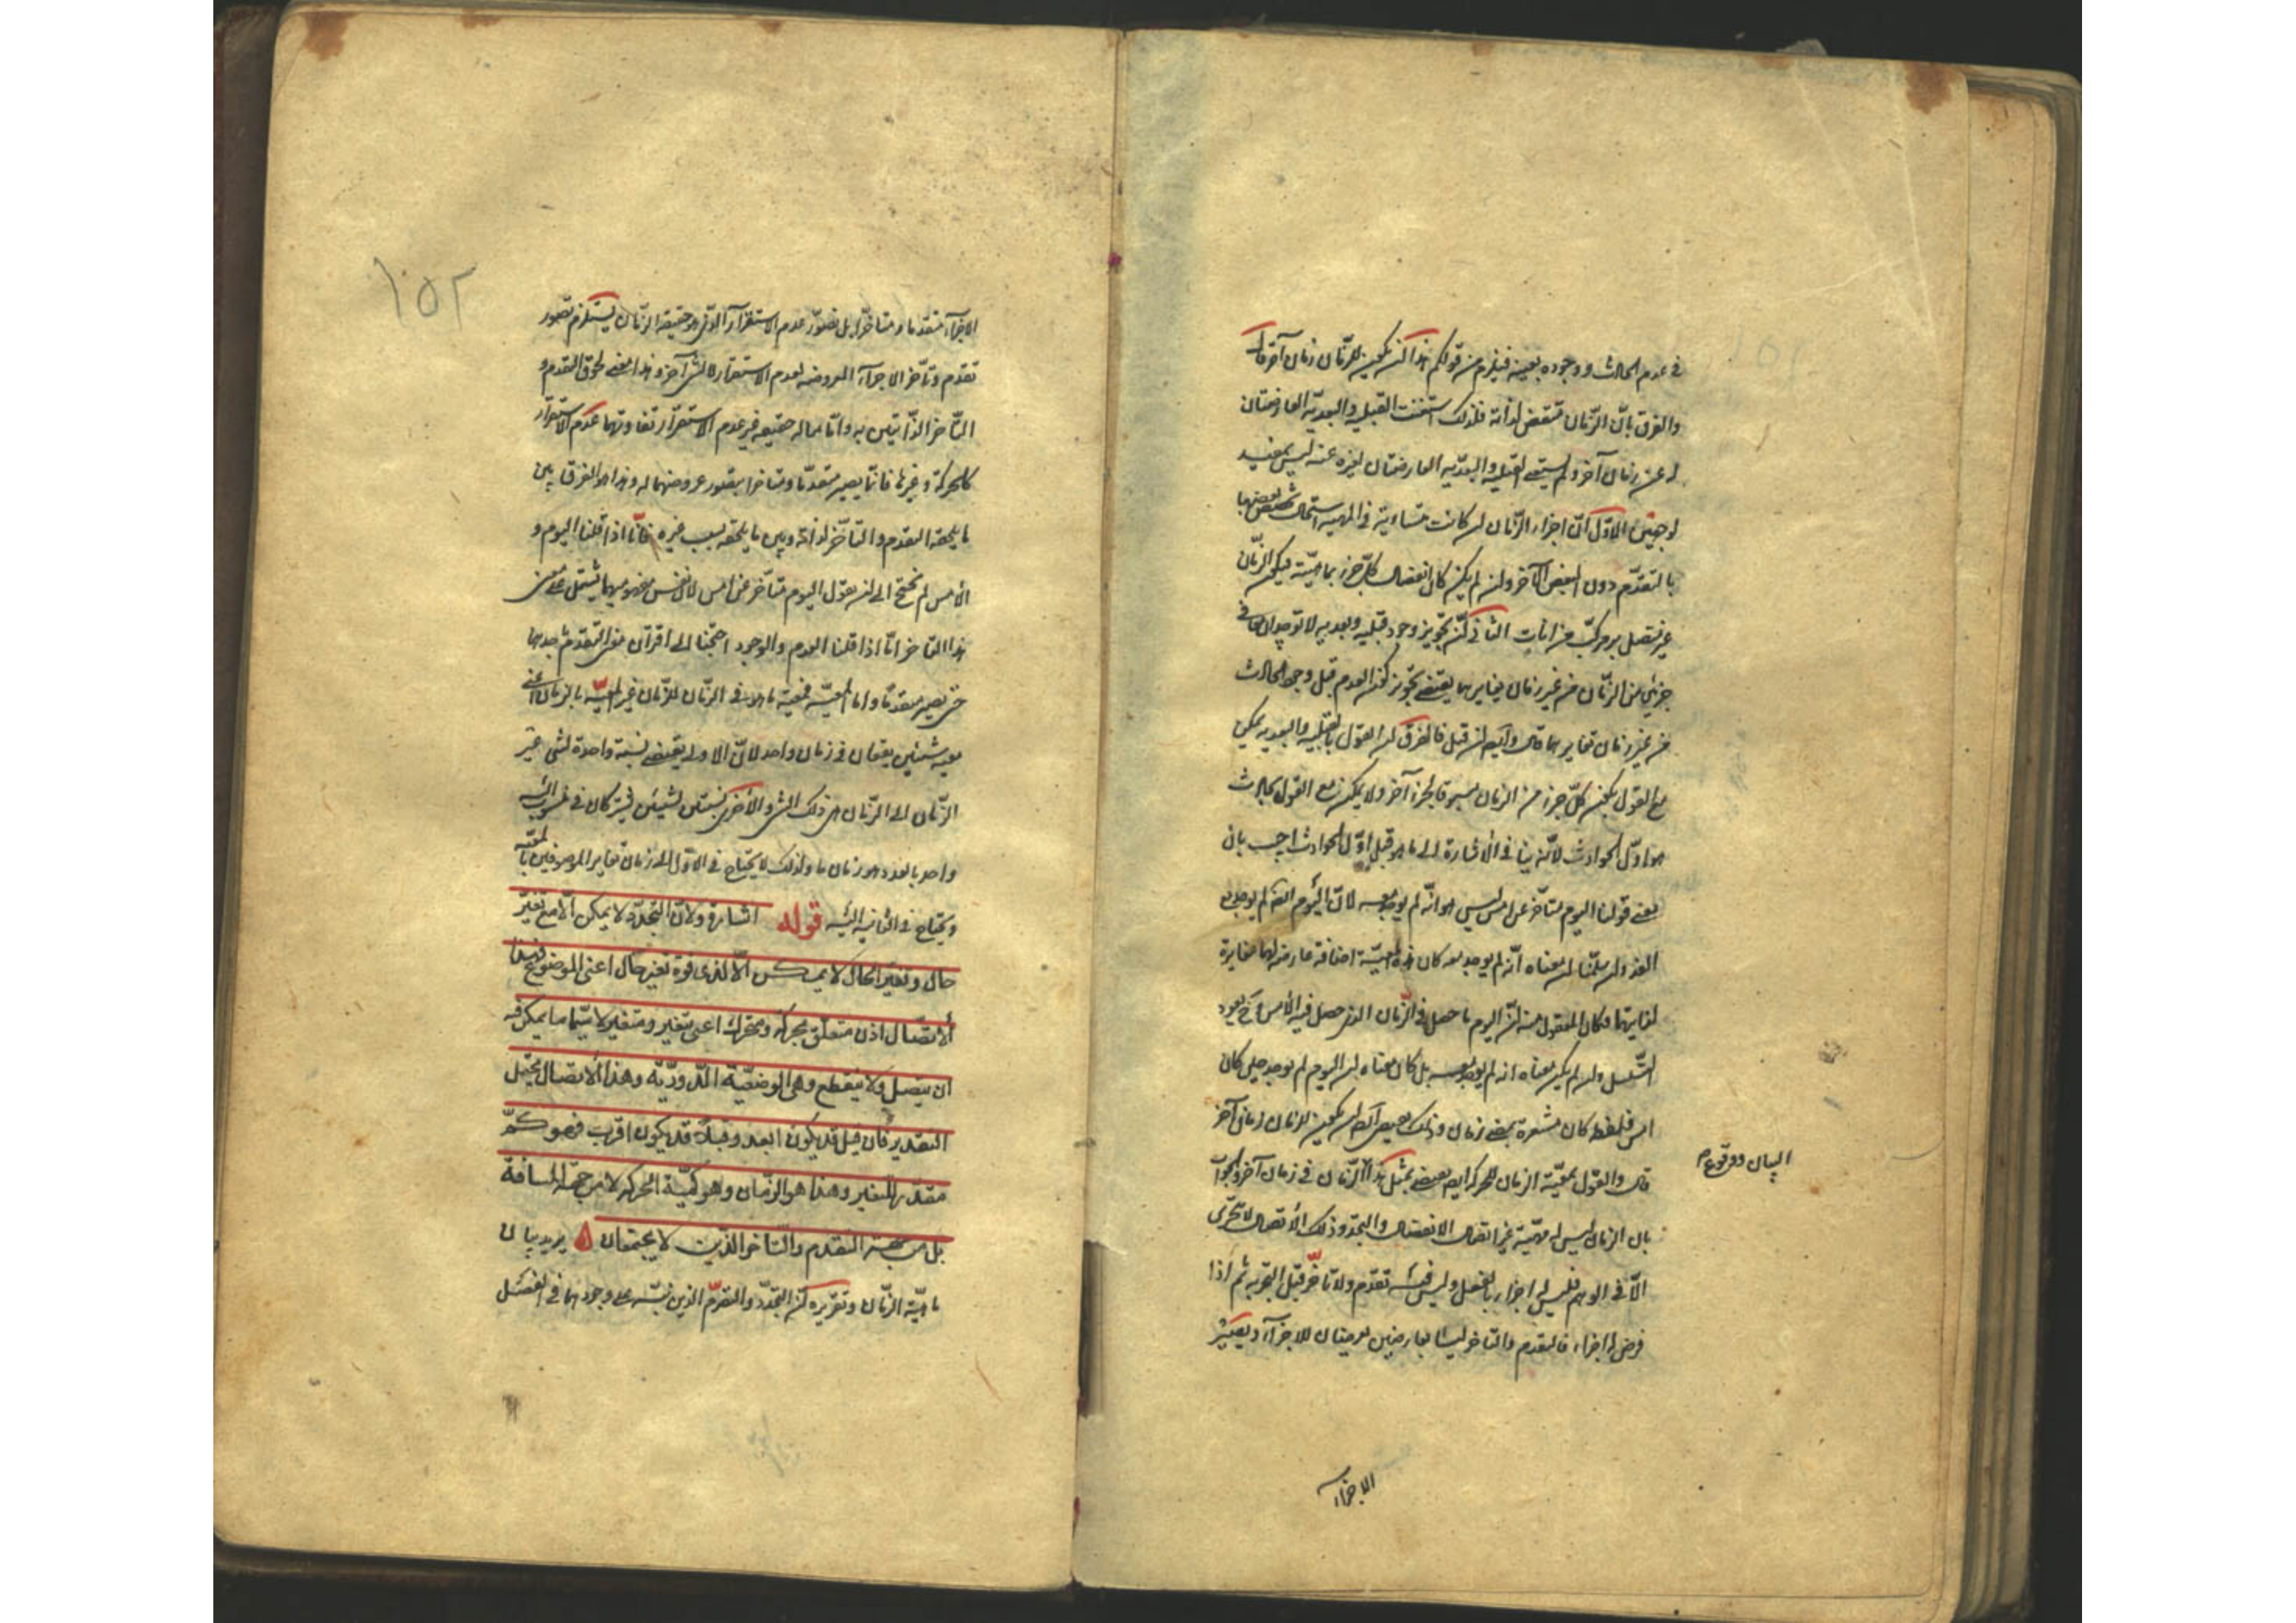 في عدم الحادث ووجوده بعينه فيلزم من قولكم هذا أن يكون للزمان زمان آخر قال
والفرق بأن الزمان منقض لذاته فلذلك استغنت القبلية والبعدية العارضتان
له عن زمان آخر ولم يستغن القبلية والبعدية العارضتان لغيره عنه ليس بمفيد
لوجهين الأول أن أجزاء الزمان إن كانت متساوية في المهية استحال تخصيص بعضها
بالتقدم دون البعض الآخر وإن لم يكن كان انفصال كل جزء بماهيته فيكون الزمان
غير متصل بل مركب من آنات الثاني أن تجويز وجود قبلية وبعدية لا توجدان معا في
جزئي من الزمان من غير زمان يغايرهما يقتضي تجويز كون العدم قبل وجود الحادث
من غير زمان تغايرهما قال وأيضا إن قيل فالفرق أن القول بالقبلية والبعدية يمكن
مع القول بكون كل جزء من الزمان مسبوقا بجزء آخر ولا يمكن مع القول بحادث
هو أول الحوادث لأنه ينافي الاشارة إلى ما هو قبل أول الحوادث اجيب بأن
معنى قولنا اليوم متأخر عن أمس ليس هو أنه لم يوجد معه لأن اليوم أيضا لم يوجد مع
الغد ولو سلمنا أن معناه أنه لم يوجد معه كان هذه المعية إضافة عارضة لهما مغايرة
لذاتيهما فكان المعقول منه أن اليوم ما حصل في الزمان الذي حصل فيه الأمس وح يعود
التسلسل وإن لم يكن معناه أنه لم يوجد معه بل كان معناه أن اليوم لم يوجد حين كان
أمس فلفظة كان مشعرة بمضي زمان وذلك يقتضي أيضا أن يكون للزمان زمان آخر
قال والقول بمعية الزمان للحركة أيضا يقتضي بمثل هذا الزمان في زمان آخر والجواب
بأن الزمان ليس له مهية غير اتصال الانقضاء والتجدد وذلك الاتصال لا يتجزى
إلا في الوهم فليس له أجزاء بالفعل وليس فيه تقدم ولا تأخر قبل التجزية ثم إذا
فرض له أجزاء فالتقدم والتأخر ليسا بعارضين يعرضان للأجزاء ويصير
الاجزاء
الاجزاء متقدما ومتأخرا بل تصور عدم الاستقرار الذي هو حقيقة الزمان يستلزم تصور
تقدم وتأخر الاجزاء المفروضة لعدم الاستقرار لا لشيء آخر وهذا معنى لحوق التقدم و
التأخر الذاتيين به وأما ما له حقيقة غير عدم الاستقرار تقارنها عدم الاستقرار
كالحركة وغيرها فانما يصير متقدما ومتأخرا بتصور عروضهما له وهذا هو الفرق بين
ما يلحقه التقدم والتأخر لذاته وبين ما يلحقه بسبب غيره فانا اذا قلنا اليوم و
الأمس لم نحتج إلى أن نقول اليوم متأخر عن أمس لأن نفس مفهوميهما يشتمل على معنى
هذا التأخر أما اذا قلنا العدم والوجود احتجنا إلى اقتران معنى التقدم بأحدهما
حتى يصير متقدما وأما المعية فمعية ما هو في الزمان للزمان غير المعية بالزمان أعني
معية شيئين يقعان في زمان واحد لأن الأولى يقتضي نسبة واحدة لشيء غير
الزمان إلى الزمان هي متى ذلك الشيء والأخرى نسبتين لشيئين يشتركان في منسوب إليه
واحد بالعدد هو زمان ما ولذلك لا يحتاج في الأولى إلى زمان تغاير الموصوفين بالمعية
ويحتاج في الثانية اليه قوله اشارة ولأن التجدد لا يمكن الا مع تغير
حال وتغير الحال لا يمكن الا لذي قوة تغير حال اعني الموضوع فهذا
الاتصال اذن متعلق بحركة ومتحرك اعني بتغير ومتغير لا سيما ما يمكن فيه
ان يتصل ولا ينقطع وهي الوضعية الدورية وهذا الاتصال يحتمل
التقدير فان قبل قد يكون ابعد وقبلا قد يكون اقرب فهو كم
مقدر للتغير وهذا هو الزمان وهو كمية الحركة لا من جهة المسافة
بل من جهة التقدم والتأخر الذين لا يجتمعان يريد بيان
ماهية الزمان وتقريره أن التجدد والتصرم الذين نبه على وجودهما في الفصل
١٥٢